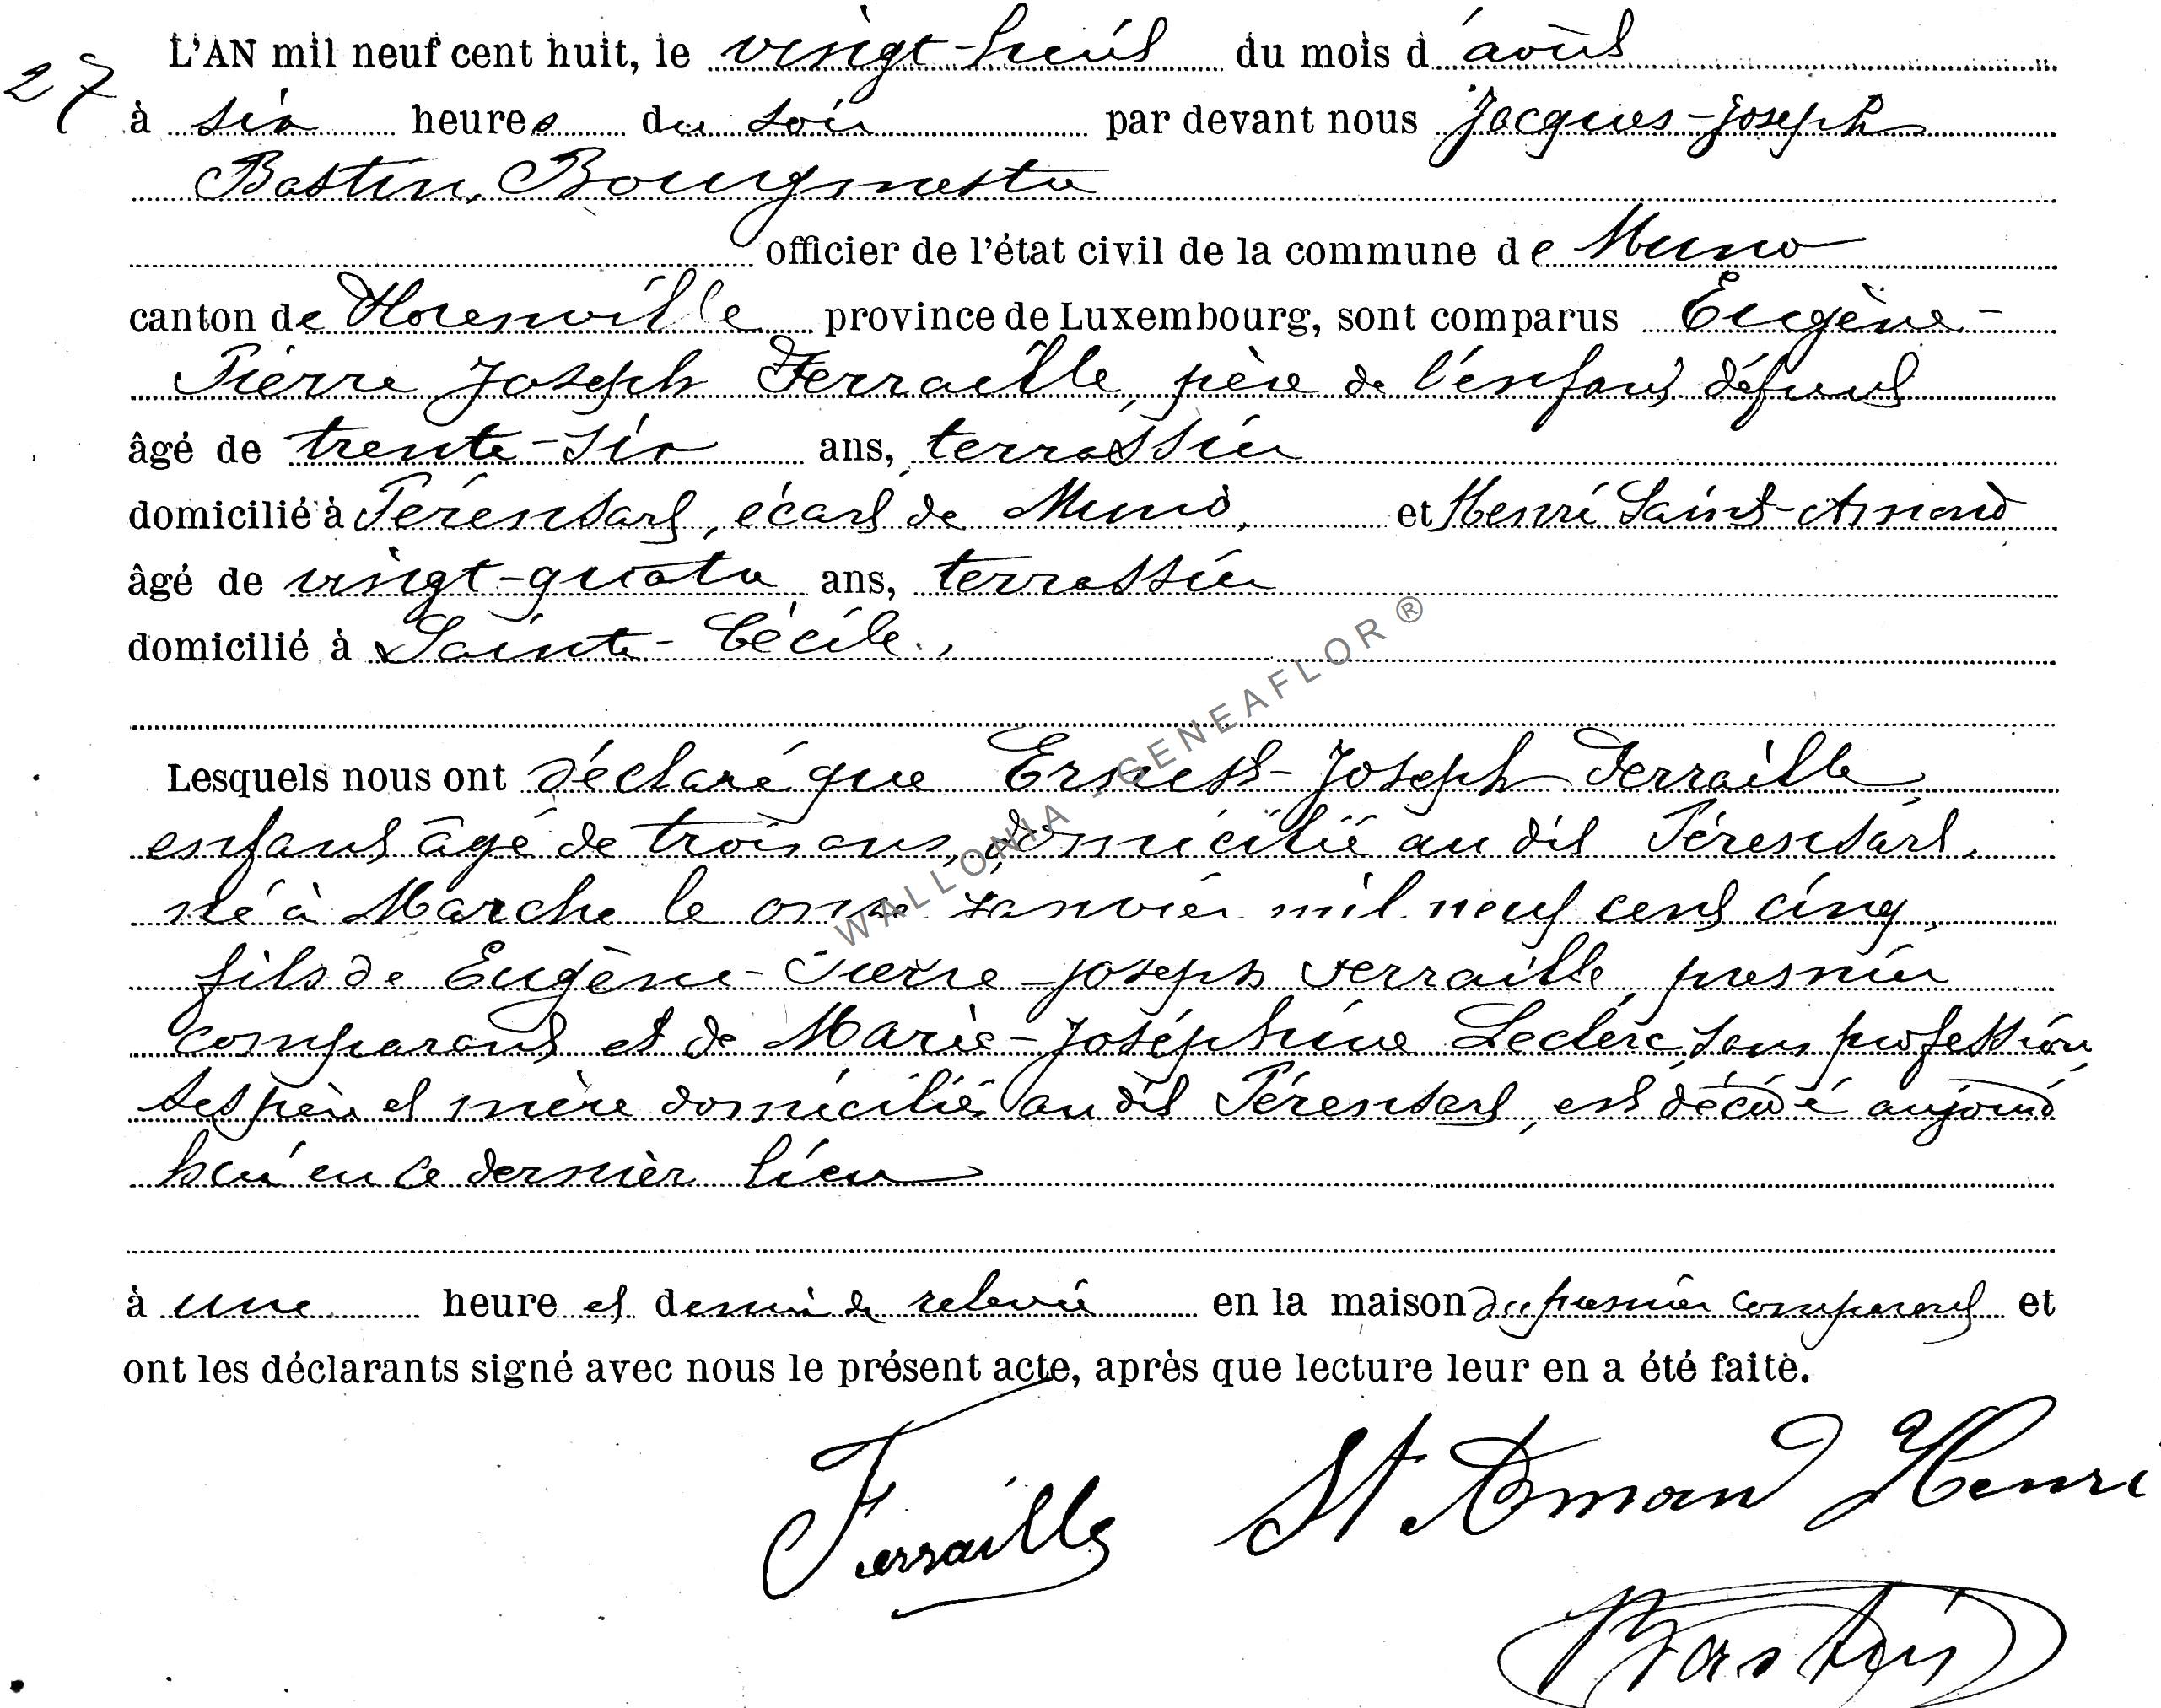 27
L'AN mil neuf cent huit, le vingt-huit du mois d'août
à six heures du soir par devant nous Jacques-Joseph
Bastin, Bourgmestre
officier de l'état civil de la commune de Muno
canton de Florenville province de Luxembourg, sont comparus Eugène-
Pierre Joseph Ferraille, père de l'enfant défunt
âgé de trente-six ans, terrassier
domicilié à Térensart, écart de Muno, et Henri Saint-Amand
âgé de vingt-quatre ans, terrassier
domicilié à Sainte-Cécile,
Lesquels nous ont déclaré que Ernest-Joseph Ferraille,
enfant âgé de trois ans, domicilié au dit Térensart,
né à Marche le onze janvier mil neuf cent cinq,
fils de Eugène-Pierre-Joseph Ferraille, premier
comparant et de Marie-Joséphine Leclerc, sans profession,
ses père et mère domiciliés au dit Térensart, est décédé aujourd
hui en ce dernier lieu
à une heure et demie de relevée en la maison du premier comparant et
ont les déclarants signé avec nous le présent acte, après que lecture leur en a été faite.
Ferraille St Amand Henri
Bastin
WALLONIA - GENEAFLOR ®